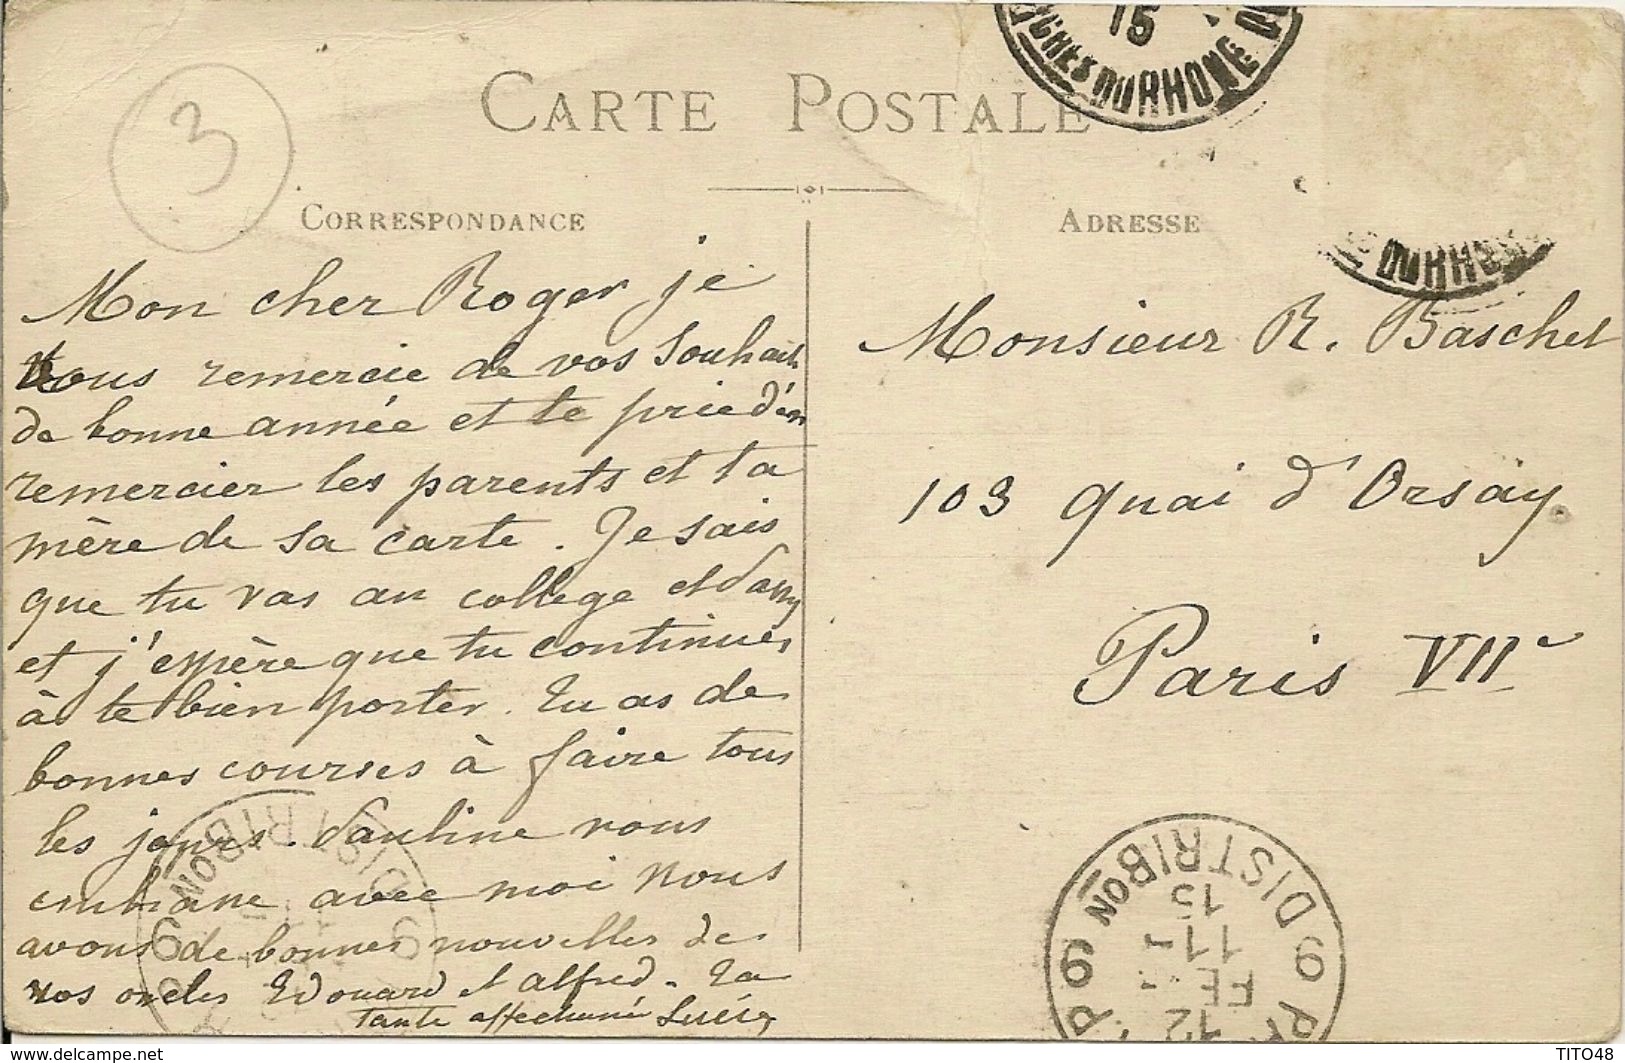 3
CARTE POSTALE
15
CHES DU RHONE
CORRESPONDANCE
ADRESSE
DU RHO
Mon cher Roger je
vous remercie de vos souhaits
de bonne année et te prie d'en
remercier tes parents et ta
mère de sa carte. Je sais
que tu vas au collège et
et j'espère que tu continues
à te bien porter. Tu as de
bonnes courses à faire tous
les jours. Pauline vous
embrasse avec moi Nous
avons de bonnes nouvelles de
vos oncles Edouard et Alfred. Ta
tante affectionnée
Monsieur R. Baschet
103 quai d'Orsay.
Paris VIIe
DISTRIBON
9
9
DISTRIBON
15
11
FE
12
9
9
www.delcampe.net
TITO48